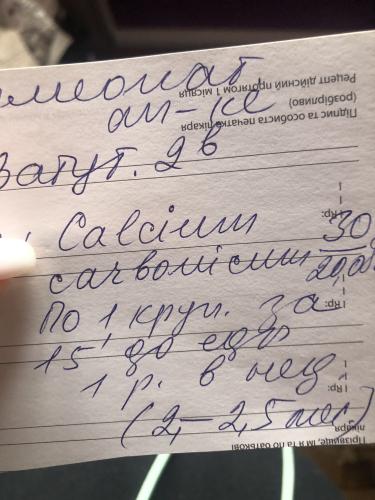 Calcium 30
carbonicum
По 1 круп. за
15' до еды
1 р. в нед
(2,-2,5 мес)
Прізвище, ім'я та по батькові
лікаря
Rp:
Rp:
Rp:
Підпис та особиста печатка лікаря
(розбірливо)
Рецепт дійсний протягом 1 місяця